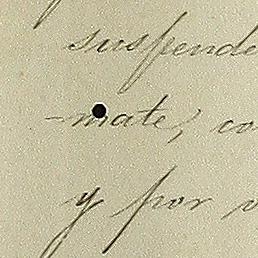 suspende
-mate, co
y por